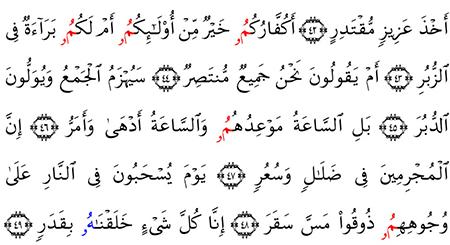 أَخْذَ عَزِيزٖ مُّقْتَدِرٍ ﴿٤٢﴾ أَكُفَّارُكُمُۥ خَيْرٞ مِّنْ أُوْلَٰٓئِكُمُۥٓ أَمْ لَكُمُۥ بَرَآءَةٞ فِى
اَلزُّبُرِ ﴿٤٣﴾ أَمْ يَقُولُونَ نَحْنُ جَمِيعٞ مُّنتَصِرٞ ﴿٤٤﴾ سَيُهْزَمُ اُلْجَمْعُ وَيُوَلُّونَ
اَلدُّبُرَ ﴿٤٥﴾ بَلِ اِلسَّاعَةُ مَوْعِدُهُمُۥ وَالسَّاعَةُ أَدْهَىٰ وَأَمَرُّ ﴿٤٦﴾ إِنَّ
اَلْمُجْرِمِينَ فِى ضَلَٰلٖ وَسُعُرٖ ﴿٤٧﴾ يَوْمَ يُسْحَبُونَ فِى اِلنَّارِ عَلَىٰ
وُجُوهِهِمُۥ ذُوقُواْ مَسَّ سَقَرَ ﴿٤٨﴾ إِنَّا كُلَّ شَىْءٍ خَلَقْنَٰهُۥ بِقَدَرٖ ﴿٤٩﴾